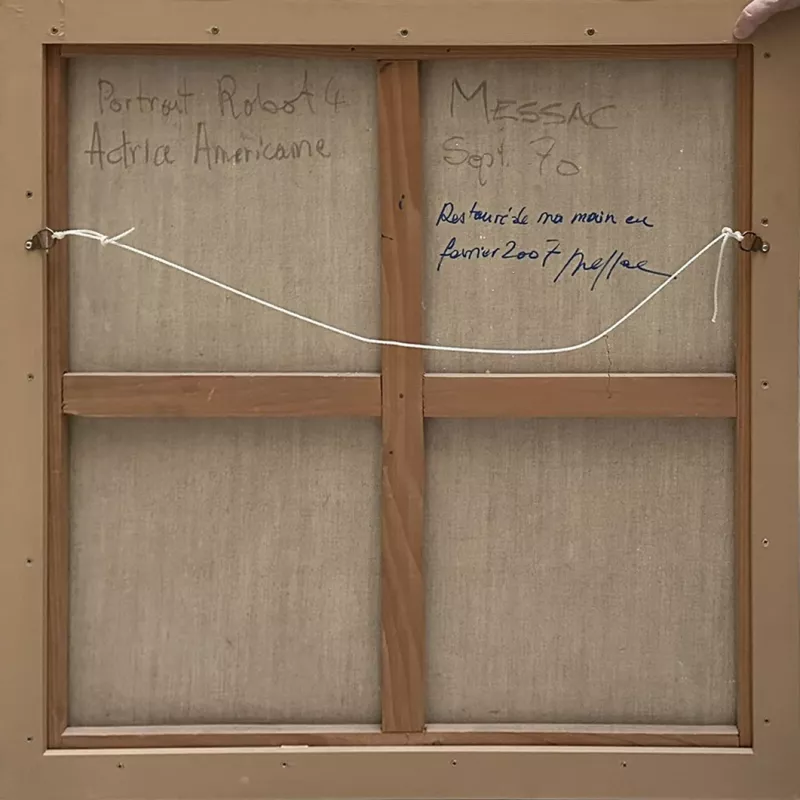 Portrait Robot 4
Actrice Américaine
MESSAC
Sept. 70
Restauré de ma main en
février 2007 Messac